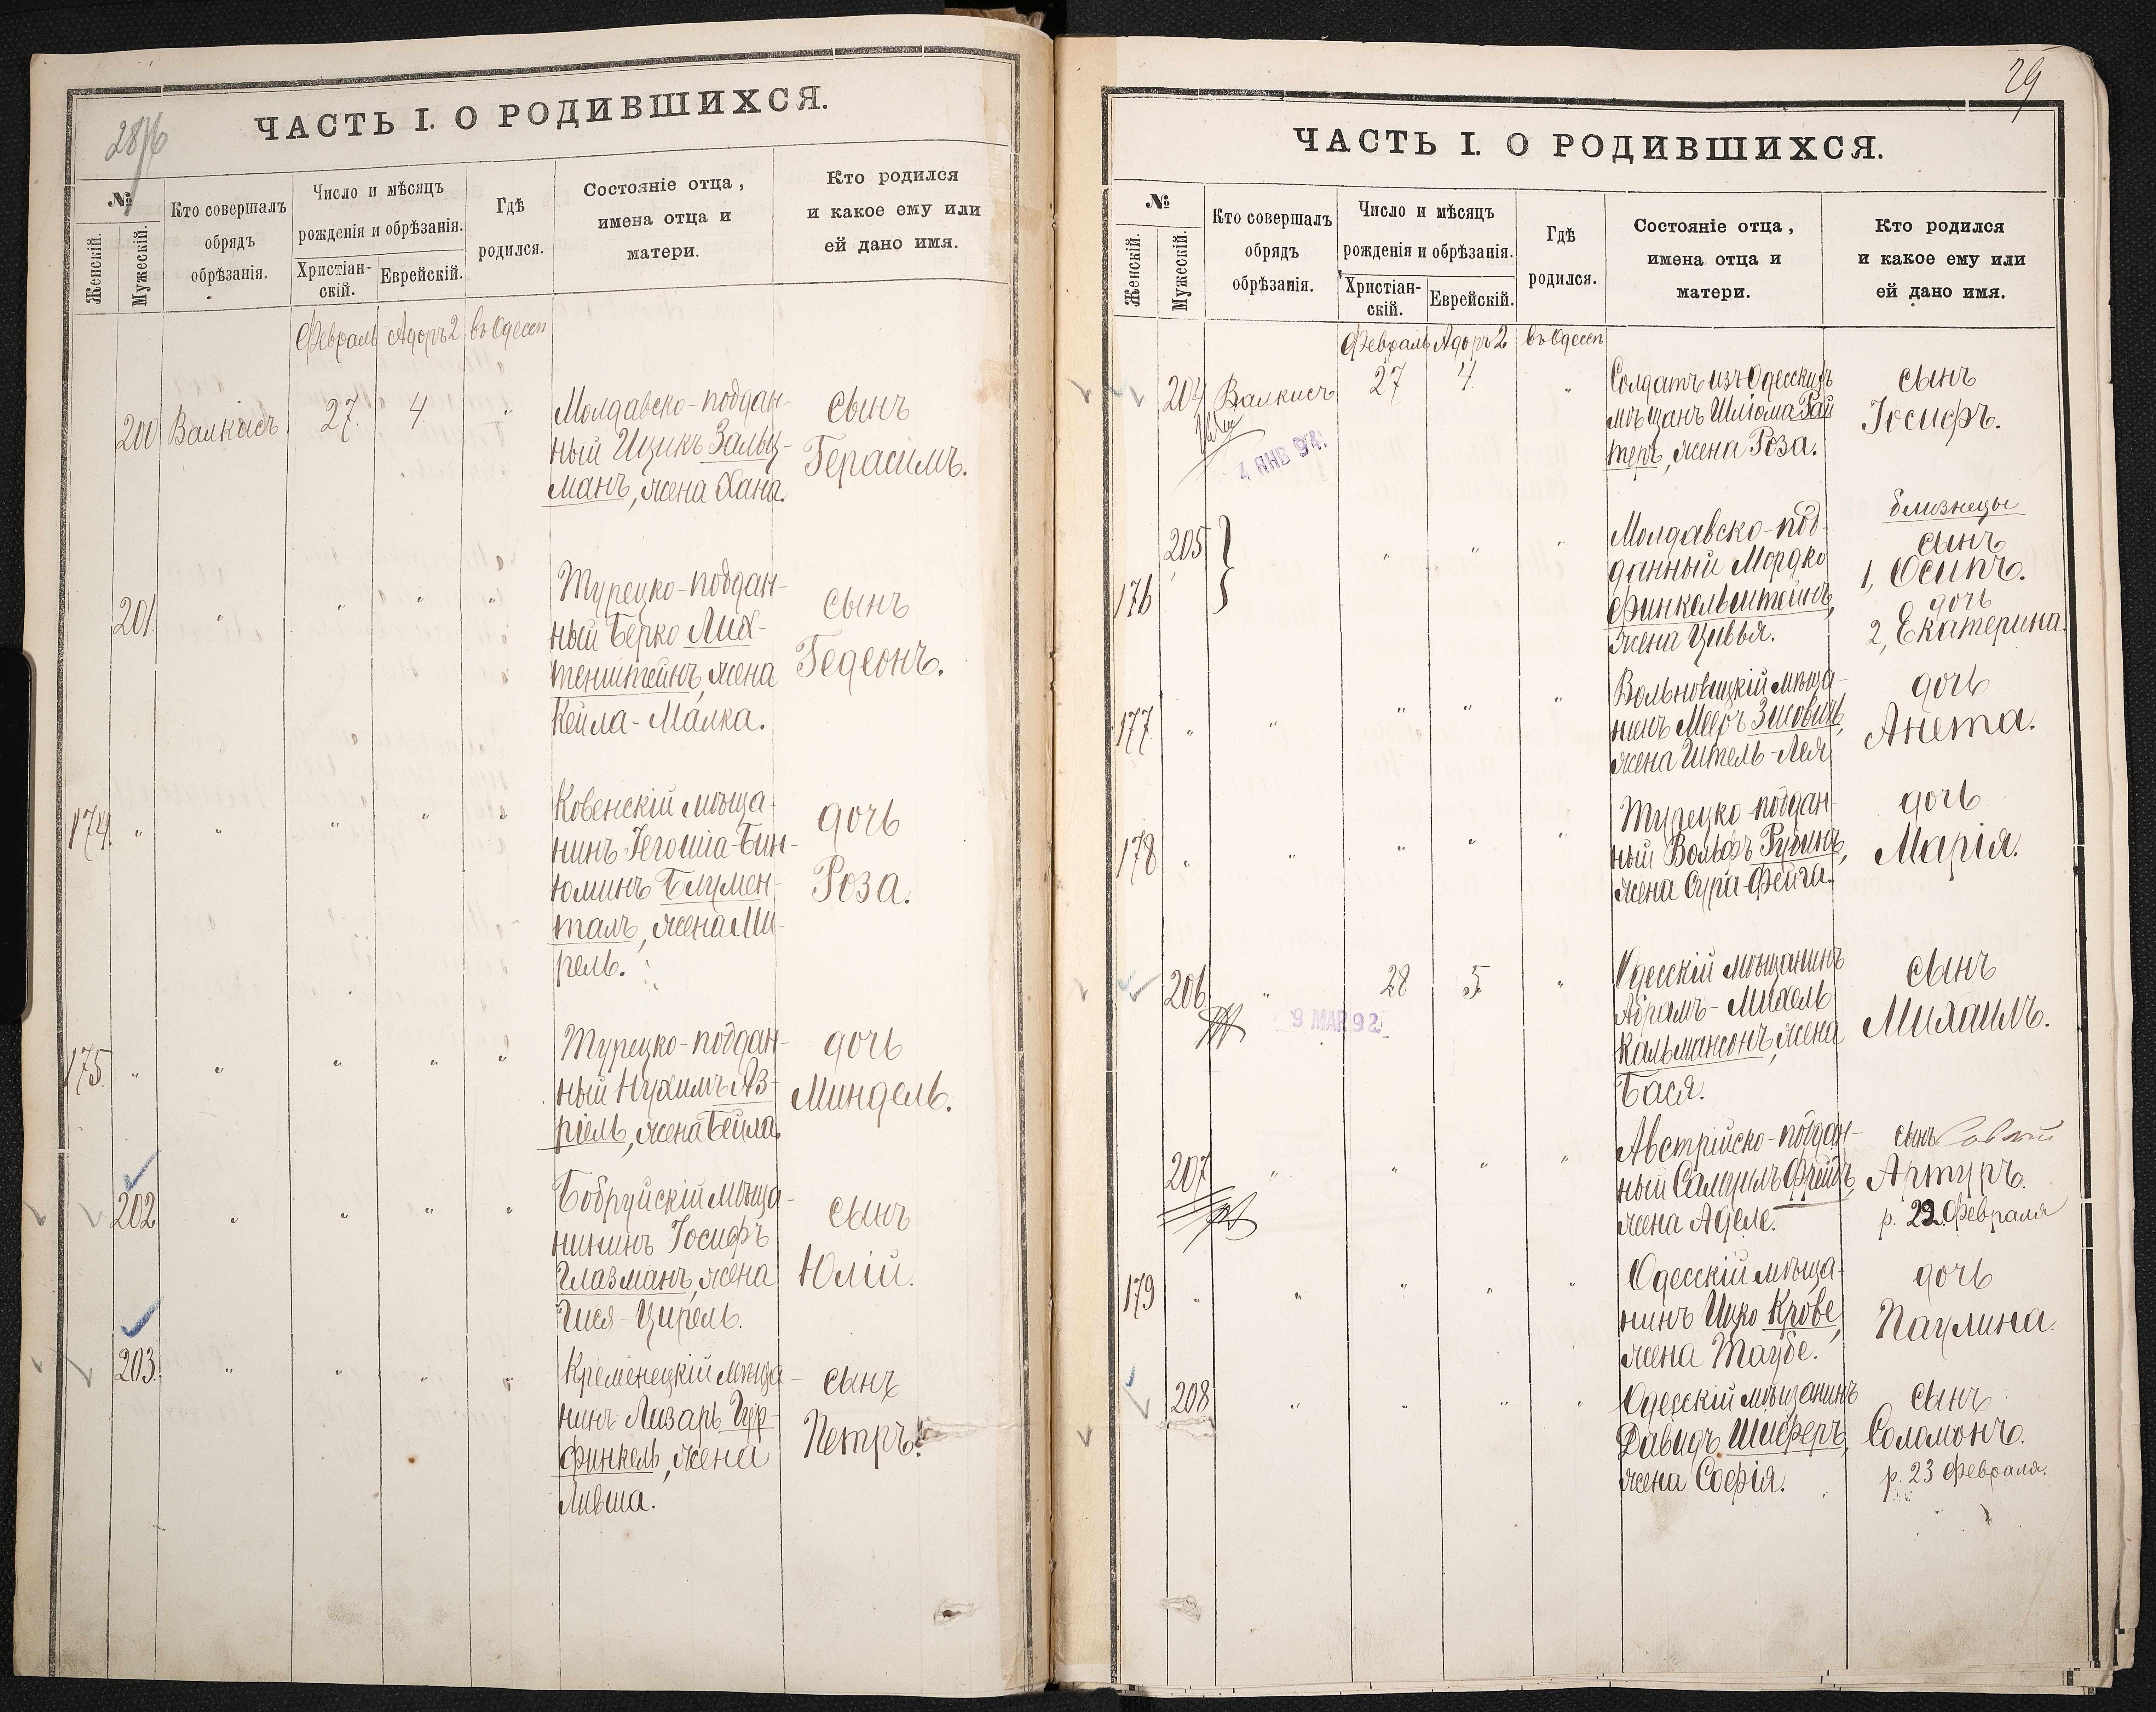 ЧАСТЬ I. О РОДИВШИХСЯ.
2876
№
Женскій.
Мужескій.
Кто совершалъ
обрядъ
обрѣзанія.
Число и мѣсяцъ
рожденія и обрѣзанія.
Христіан-
скій.
Еврейскій.
Гдѣ
родился.
Состояніе отца,
имена отца и
матери.
Кто родился
и какое ему или
ей дано имя.
Февраль Адоръ 2 въ Одессѣ
200 Валкисъ 27 4 "
Молдавско-поддан-
ный Ицикъ Зальц-
манъ, жена Хана.
сынъ
Герасимъ.
201 " " " "
Турецко-поддан-
ный Берко Лих-
тенштейнъ, жена
Кейла-Малка.
сынъ
Гедеонъ.
174 " " " " "
Ковенскій мѣща-
нинъ Іегошіа-Бин-
юминъ Блумен-
талъ, жена Ми-
рель.
дочь
Роза.
175 " " " " "
Турецко-поддан-
ный Нухимъ Аз-
ріель, жена Бейла.
дочь
Миндель.
202 " " " "
Бобруйскій мѣща-
нинъ Іосифъ
Глазманъ, жена
Гися-Цирель.
сынъ
Юлій.
203 " " " "
Кременецкій мѣща-
нинъ Лазарь Гур-
финкель, жена
Ливша.
сынъ
Петръ.
29
ЧАСТЬ I. О РОДИВШИХСЯ.
№
Женскій.
Мужескій.
Кто совершалъ
обрядъ
обрѣзанія.
Число и мѣсяцъ
рожденія и обрѣзанія.
Христіан-
скій.
Еврейскій.
Гдѣ
родился.
Состояніе отца,
имена отца и
матери.
Кто родился
и какое ему или
ей дано имя.
Февраль Адоръ 2 въ Одессѣ
204 Валкисъ 27 4 "
4 ЯНВ 94
Солдатъ изъ Одесскихъ
мѣщанъ Шліома Рай
теръ, жена Роза.
сынъ
Іосифъ.
205 " " "
176
Молдавско-под-
данный Мордко
Финкельштейнъ,
жена Цивья.
близнецы
сынъ
1, Осипъ.
дочь
2, Екатерина.
177 " " " " "
мѣща-
нинъ Мееръ Зисовичъ,
жена Ителъ-Лея
дочь
Анета.
178 " " " " "
Турецко поддан-
ный Вольфъ Рубинъ,
жена Сура-Фейга.
дочь
Марія.
206 " 28 5 "
9 МАР 92
Одесскій мѣщанинъ
Абрамъ-Михель
Кальмансонъ, жена
Бася.
сынъ
Михаилъ.
207 " " " "
Австрійско-поддан-
ный Самуилъ Фрейдъ,
жена Аделе.
сынъ
Артуръ.
р. 22 Февраля
179 " " " " "
Одесскій мѣща-
нинъ Ицко Крове,
жена Таубе.
дочь
Паулина.
208 " " " "
Одесскій мѣщанинъ
Давидъ Шиферъ,
жена Софія.
сынъ
Соломонъ.
р. 23 Февраля.